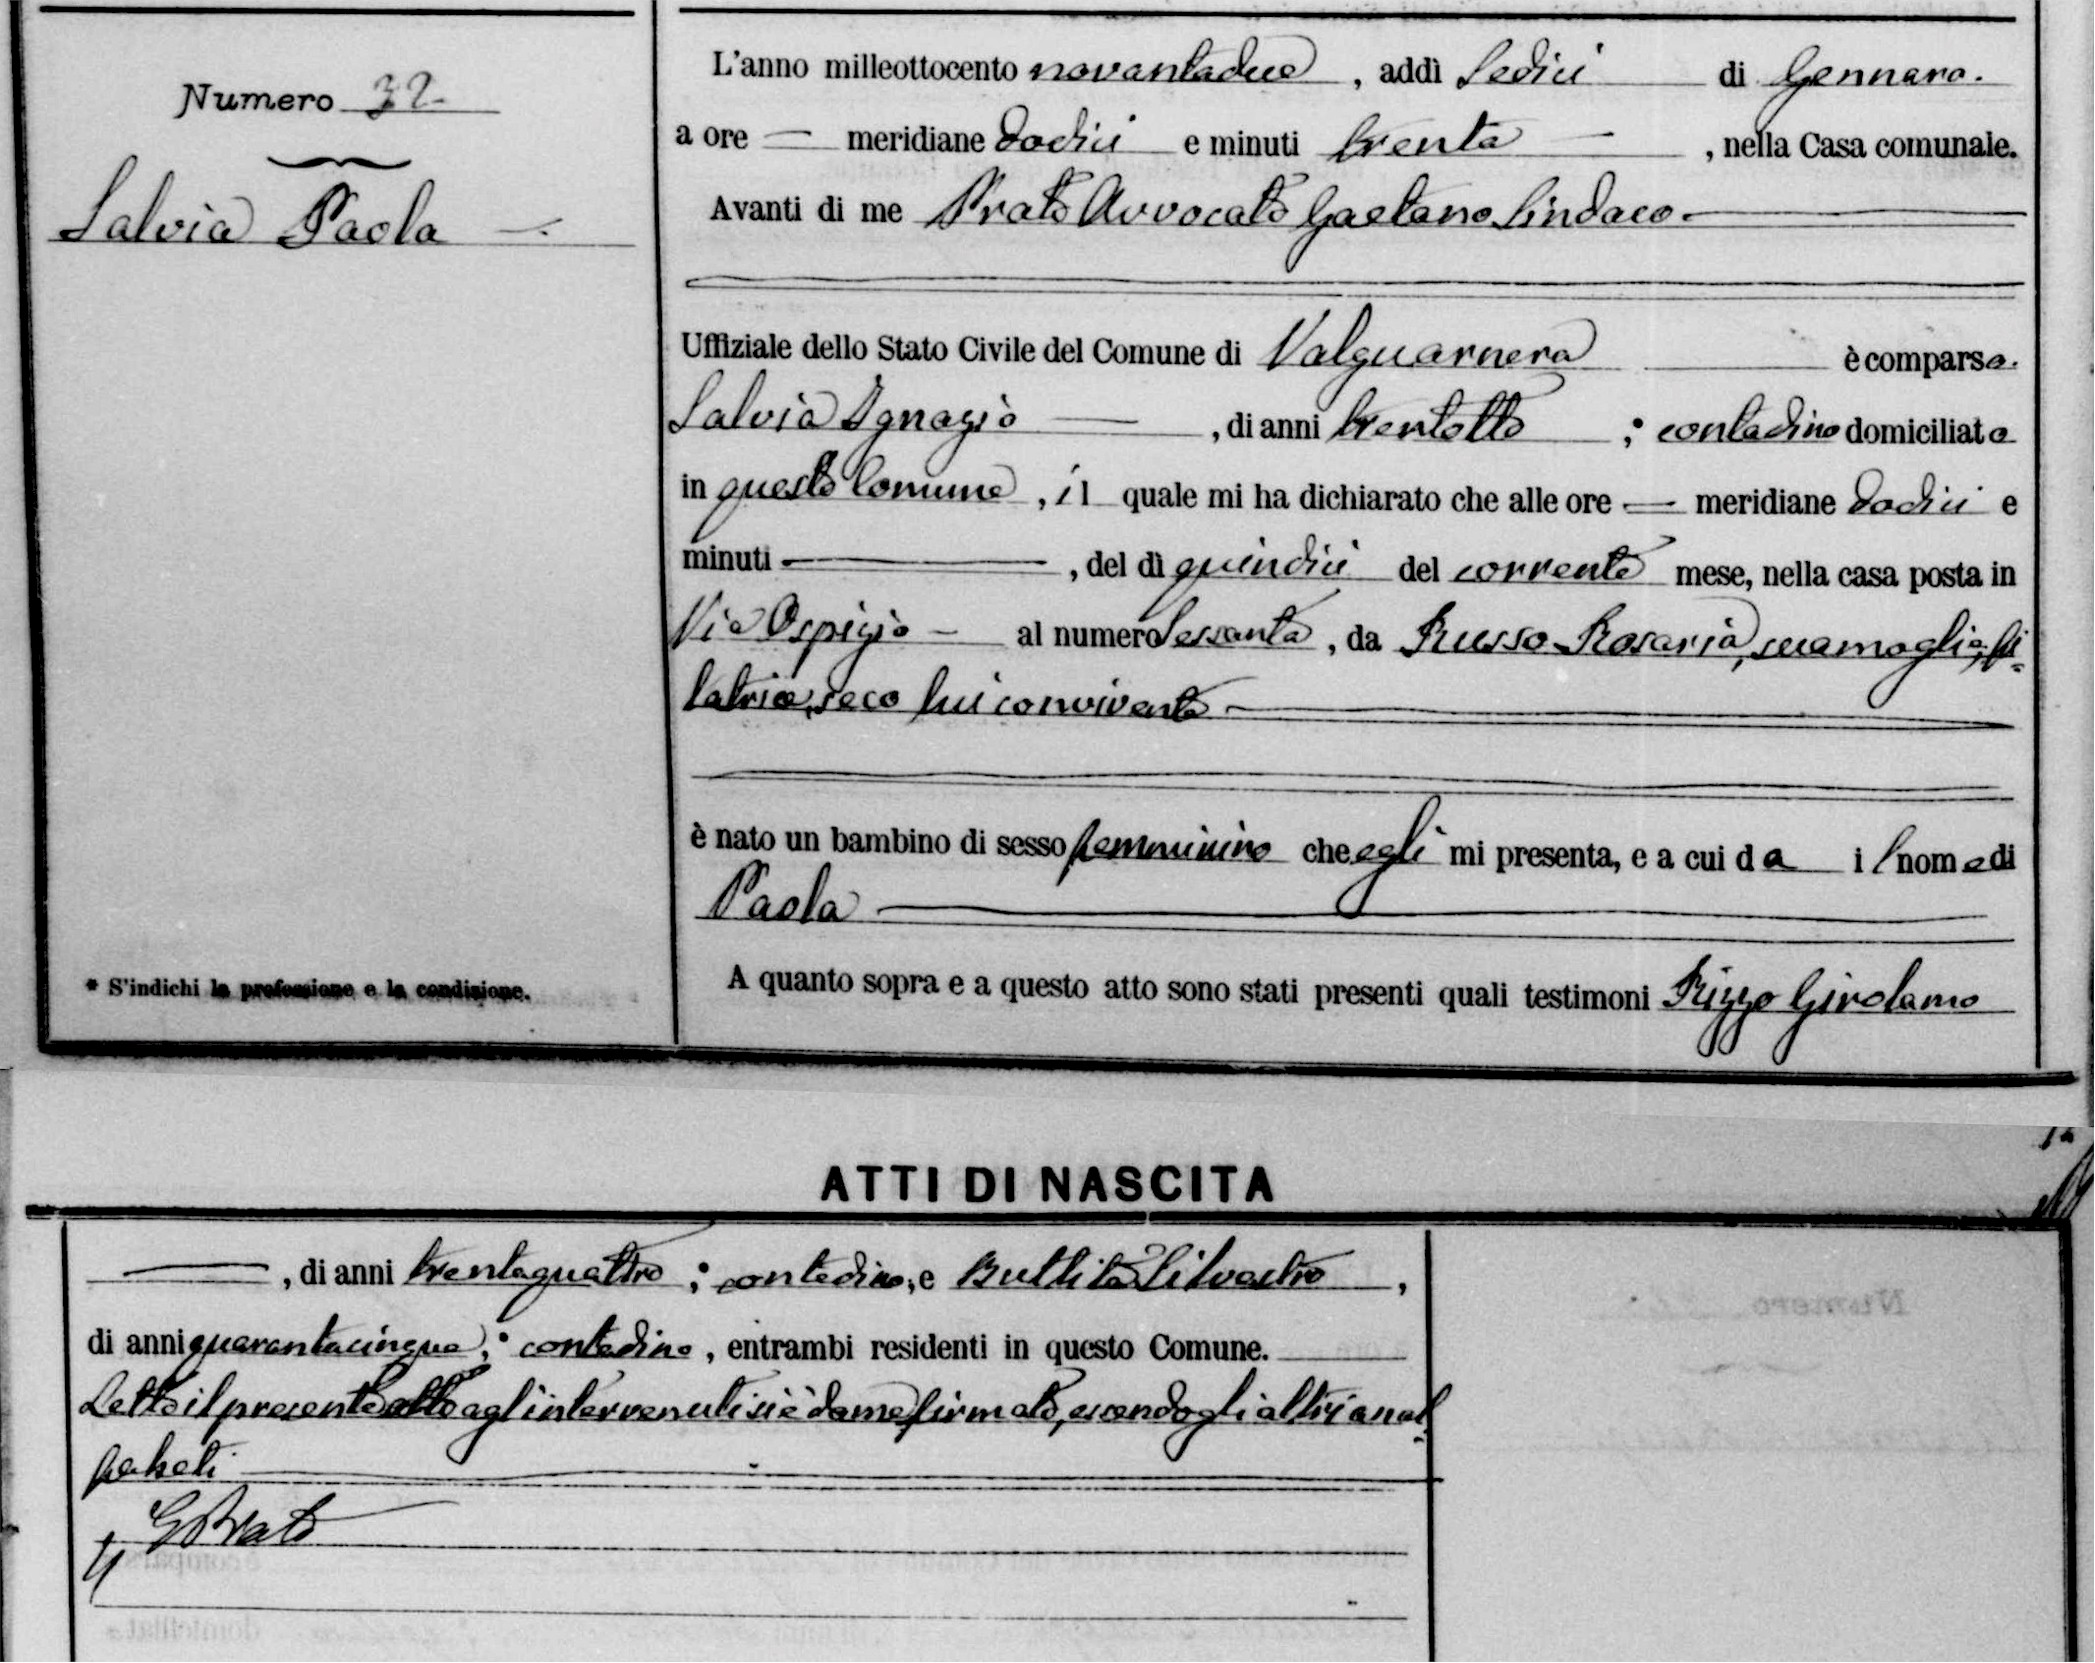 Numero 32
Salvia Paola
* S'indichi la professione e la condizione.
L'anno milleottocento novantadue, addì Sedici di Gennaro.
a ore — meridiane dodici e minuti trenta —, nella Casa comunale.
Avanti di me Prato Avvocato Gaetano Sindaco.
Uffiziale dello Stato Civile del Comune di Valguarnera è comparso.
Salvia Ignazio —, di anni trentotto; contadino domiciliato
in questo Comune, il quale mi ha dichiarato che alle ore — meridiane dodici e
minuti —, del dì quindici del corrente mese, nella casa posta in
Via Ospizio — al numero Sessanta, da Russo Rosaria, sua moglie, fi-
latrice, seco lui convivente —
è nato un bambino di sesso femminino che egli mi presenta, e a cui da il nome di
Paola —
A quanto sopra e a questo atto sono stati presenti quali testimoni Rizzo Girolamo
ATTI DI NASCITA
—, di anni trentaquattro; contadino, e Buttita Silvestro,
di anni quarantacinque; contadino, entrambi residenti in questo Comune.
Letto il presente atto agl'intervenuti si è da me firmato, essendo gli altri anal-
fabeti —
G Prato
Numero